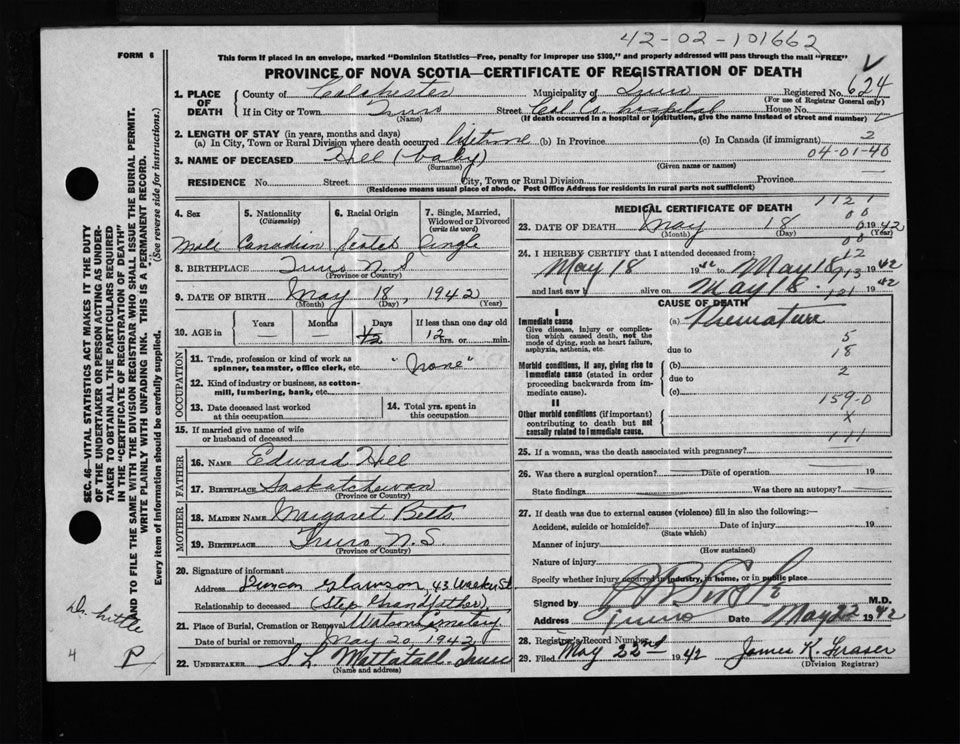 42-02-101662
FORM 6
This form if placed in an envelope, marked "Dominion Statistics—Free, penalty for improper use $300," and properly addressed will pass through the mail "FREE"
PROVINCE OF NOVA SCOTIA—CERTIFICATE OF REGISTRATION OF DEATH
1. PLACE OF DEATH County of Colchester Municipality of Truro Registered No. 624
(For use of Registrar General only)
If in City or Town Truro (Name) Street Col. Co. hospital House No.
(If death occurred in a hospital or institution, give the name instead of street and number)
2. LENGTH OF STAY (in years, months and days)
(a) In City, Town or Rural Division where death occurred lifetime (b) In Province (c) In Canada (if immigrant) 2
3. NAME OF DECEASED Hill (baby) 04-01-40
(Surname) (Given name or names)
RESIDENCE No. Street City, Town or Rural Division Province
(Residence means usual place of abode. Post Office Address for residents in rural parts not sufficient)
4. Sex 5. Nationality (Citizenship) 6. Racial Origin 7. Single, Married, Widowed or Divorced (write the word)
Male Canadian Scotch Single
8. BIRTHPLACE Truro N.S
(Province or Country)
9. DATE OF BIRTH May 18, 1942
(Month) (Day) (Year)
10. AGE in Years Months Days If less than one day old
— — 1/2 12 hrs. or min.
OCCUPATION
11. Trade, profession or kind of work as spinner, teamster, office clerk, etc. "none"
12. Kind of industry or business, as cotton-mill, lumbering, bank, etc.
13. Date deceased last worked at this occupation
14. Total yrs. spent in this occupation
15. If married give name of wife or husband of deceased
FATHER
16. NAME Edward Hill
17. BIRTHPLACE Saskatchewan
(Province or Country)
MOTHER
18. MAIDEN NAME Margaret Betts
19. BIRTHPLACE Truro N.S.
(Province or Country)
20. Signature of informant
Address 43 St
Relationship to deceased (Step Grandfather)
21. Place of Burial, Cremation or Removal Watson Cemetery
Date of burial or removal May 20, 1942
22. UNDERTAKER S L Mattatall Truro
(Name and address)
MEDICAL CERTIFICATE OF DEATH
1121
00
23. DATE OF DEATH May 18 1942
(Month) (Day) (Year)
24. I HEREBY CERTIFY that I attended deceased from:
May 18 1942 to May 18 1942
and last saw h alive on May 18 1942
CAUSE OF DEATH
I
Immediate cause (a) Premature
Give disease, injury or complication which caused death, not the mode of dying, such as heart failure, asphyxia, asthenia, etc.
due to
5
18
Morbid conditions, if any, giving rise to immediate cause (stated in order proceeding backwards from immediate cause).
(b) 2
due to
(c) 159-0
II
Other morbid conditions (if important) contributing to death but not causally related to immediate cause.
X
111
25. If a woman, was the death associated with pregnancy?
26. Was there a surgical operation? Date of operation 19
State findings Was there an autopsy?
27. If death was due to external causes (violence) fill in also the following:—
Accident, suicide or homicide? Date of injury 19
(State which)
Manner of injury
(How sustained)
Nature of injury
Specify whether injury occurred in industry, in home, or in public place
Signed by M.D.
Address Truro Date May 22 1942
28. Registrar's Record Number
29. Filed May 22nd 1942 James K. Fraser
(Division Registrar)
SEC. 46—VITAL STATISTICS ACT MAKES IT THE DUTY OF THE UNDERTAKER OR PERSON ACTING AS UNDERTAKER TO OBTAIN ALL THE PARTICULARS REQUIRED IN THE "CERTIFICATE OF REGISTRATION OF DEATH"
AND TO FILE THE SAME WITH THE DIVISION REGISTRAR WHO SHALL ISSUE THE BURIAL PERMIT.
WRITE PLAINLY WITH UNFADING INK. THIS IS A PERMANENT RECORD.
Every item of information should be carefully supplied. (See reverse side for instructions.)
Dr. Little
4
P